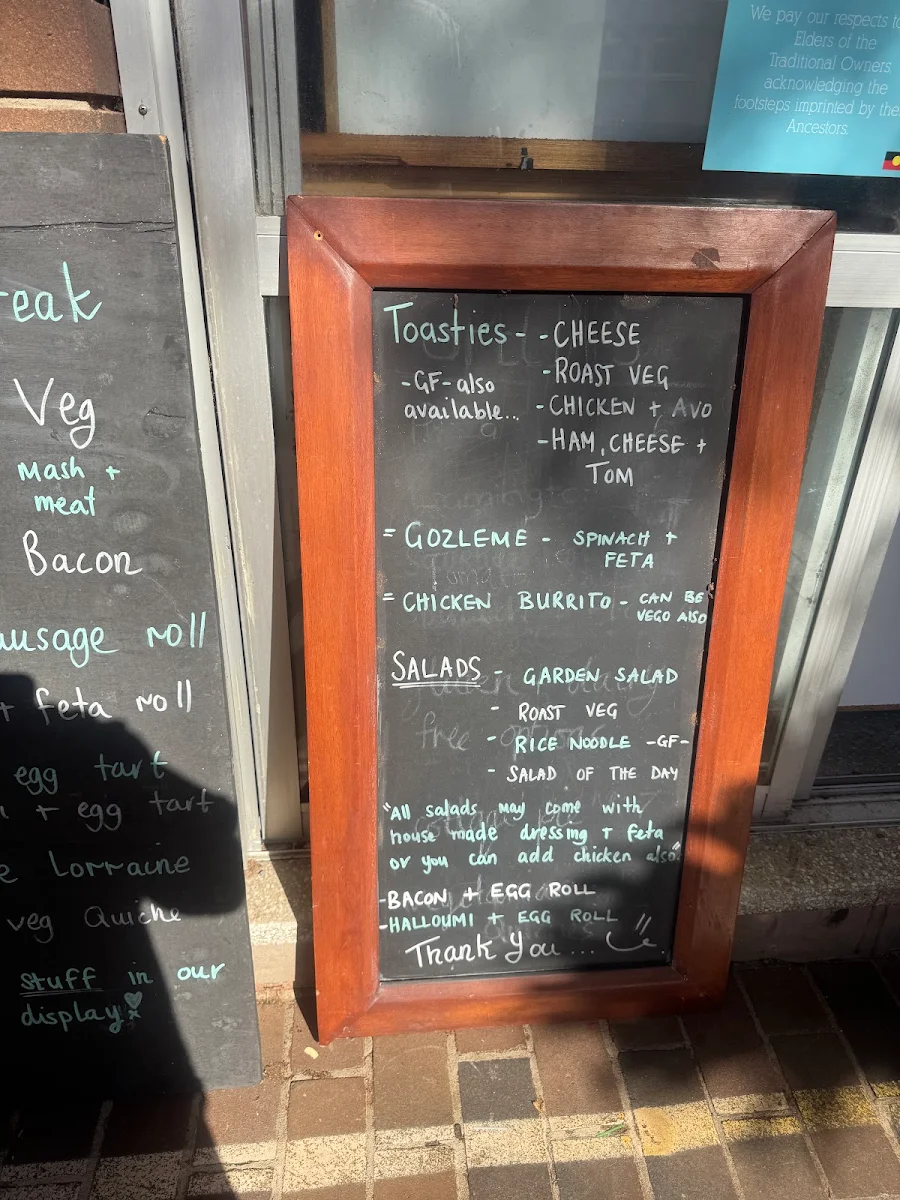 We pay our respects to
Elders of the
Traditional Owners
acknowledging the
footsteps imprinted by the
Ancestors.
Veg
Mash +
meat
Bacon
roll
+ feta roll
egg tart
+ egg tart
Lorraine
veg Quiche
stuff in our
display
Toasties - - CHEESE
-GF- also
available...
- ROAST VEG
- CHICKEN + AVO
- HAM, CHEESE +
TOM
= GOZLEME - SPINACH +
FETA
= CHICKEN BURRITO - CAN BE
VEGO ALSO
SALADS - GARDEN SALAD
- ROAST VEG
- RICE NOODLE -GF-
- SALAD OF THE DAY
"All salads may come with
house made dressing + feta
or you can add chicken also"
- BACON + EGG ROLL
- HALLOUMI + EGG ROLL
Thank you...